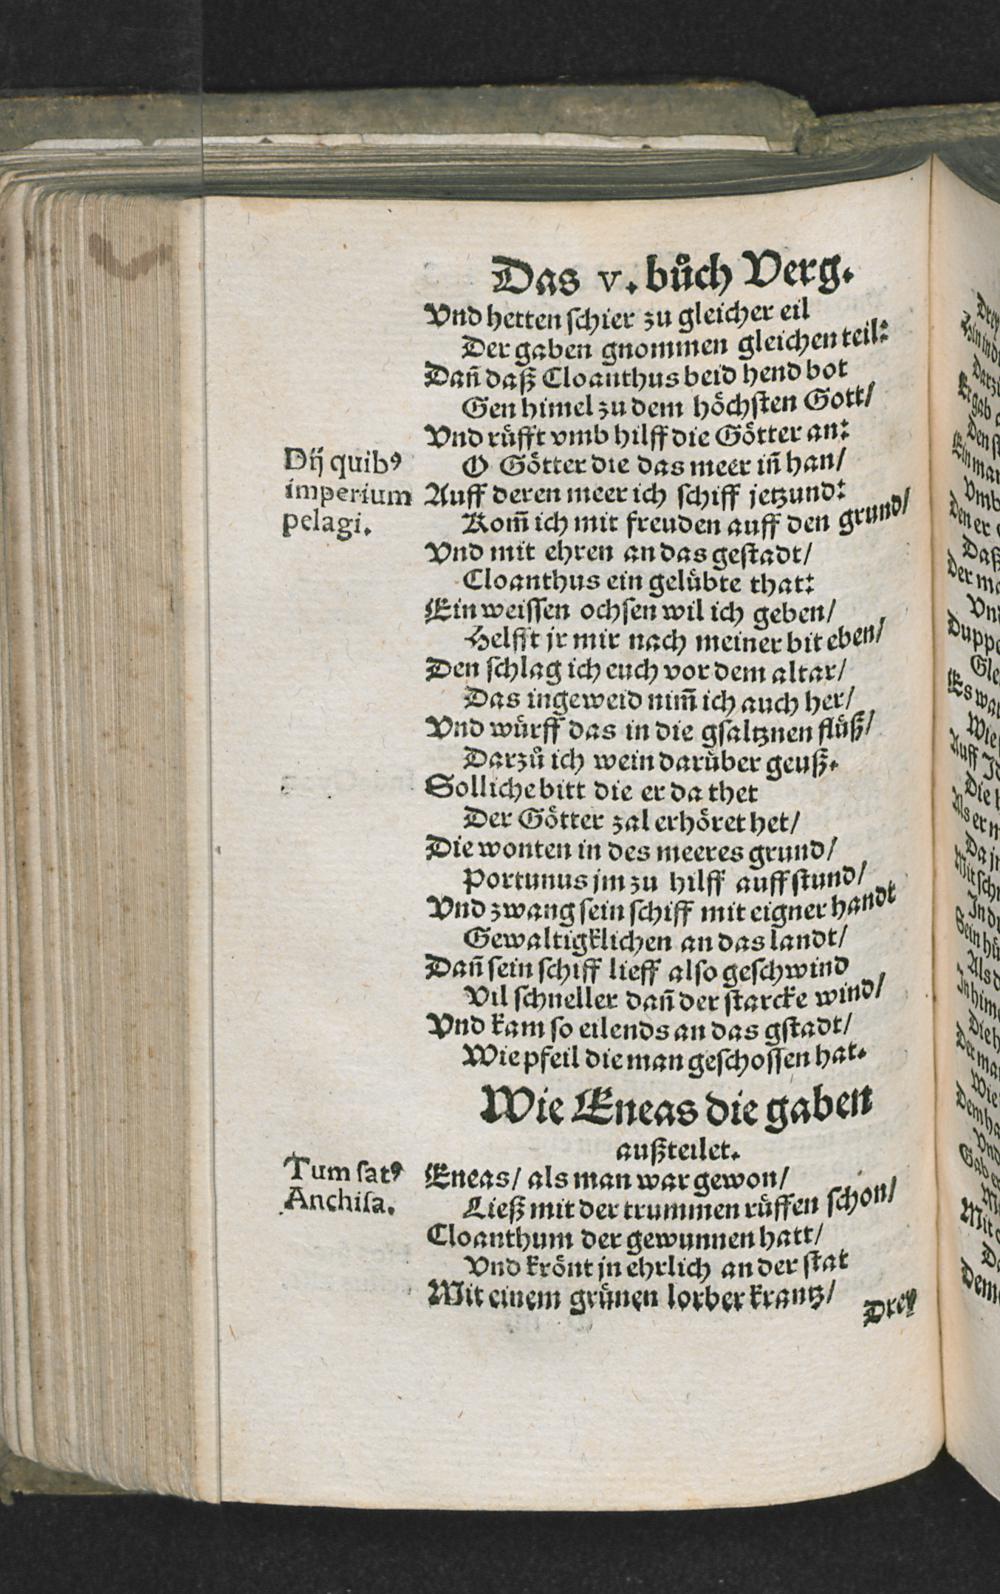 Das v. bůch Verg.
Vnd hetten schier zu gleicher eil
Der gaben gnommen gleichen teil:
Dañ daß Cloanthus beid hend bot
Gen himel zu dem höchsten Gott/
Vnd rüfft vmb hilff die Götter an:
Dij quibꝰ
imperium
pelagi.
O Götter die das meer iñ han/
Auff deren meer ich schiff jetzund:
Kom̃ ich mit freuden auff den grund/
Vnd mit ehren an das gestadt/
Cloanthus ein gelübte that:
Ein weissen ochsen wil ich geben/
Helfft jr mir nach meiner bit eben/
Den schlag ich euch vor dem altar/
Das ingeweid nim̃ ich auch her/
Vnd würff das in die gsaltznen flüß/
Darzů ich wein darüber geuß.
Solliche bitt die er da thet
Der Götter zal erhöret het/
Die wonten in des meeres grund/
Portunus jm zu hilff auff stund/
Vnd zwang sein schiff mit eigner handt
Gewaltigklichen an das landt/
Dañ sein schiff lieff also geschwind
Vil schneller dañ der starcke wind/
Vnd kam so eilends an das gstadt/
Wie pfeil die man geschossen hat.
Wie Eneas die gaben
außteilet.
Tum satꝰ
Anchisa.
Eneas/ als man war gewon/
Ließ mit der trummen rüffen schon/
Cloanthum der gewunnen hatt/
Vnd krönt jn ehrlich an der stat
Mit einem grünen lorber krantz/
Drey